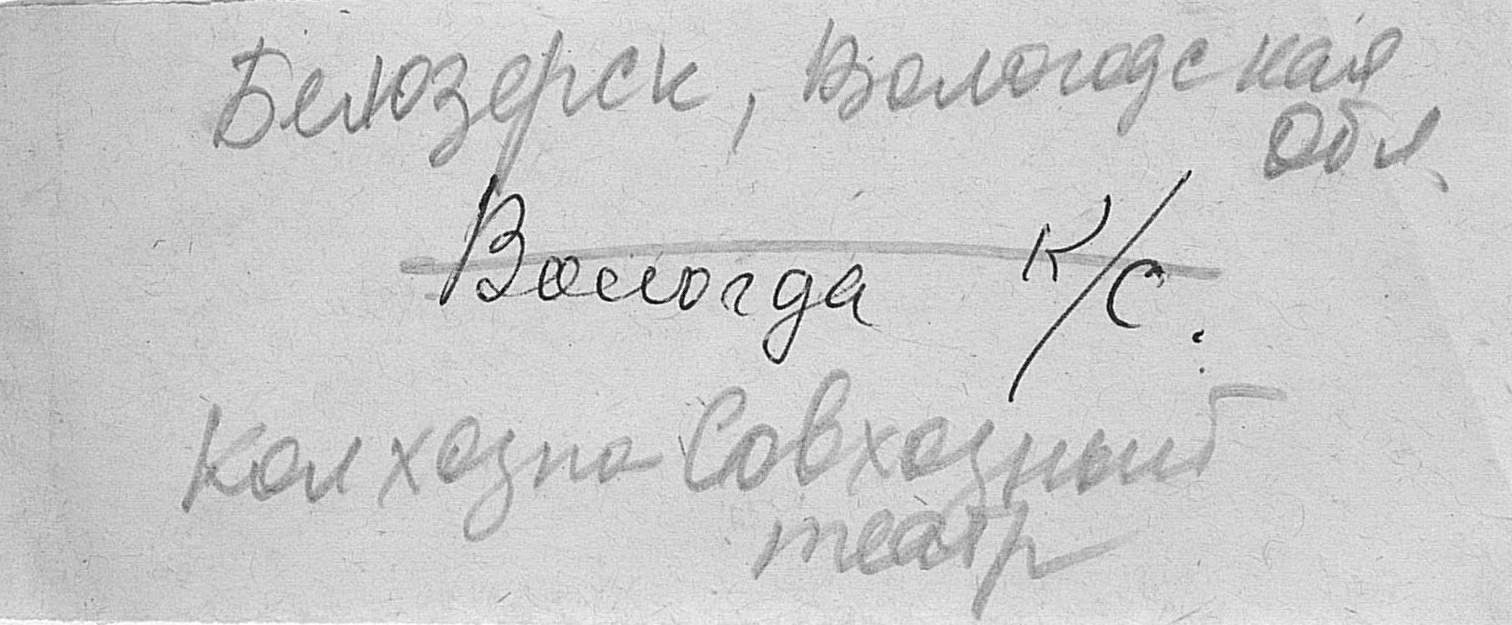 Белозерск, Вологодская
обл.
Вологда к/с.
Колхозно Совхозный
театр